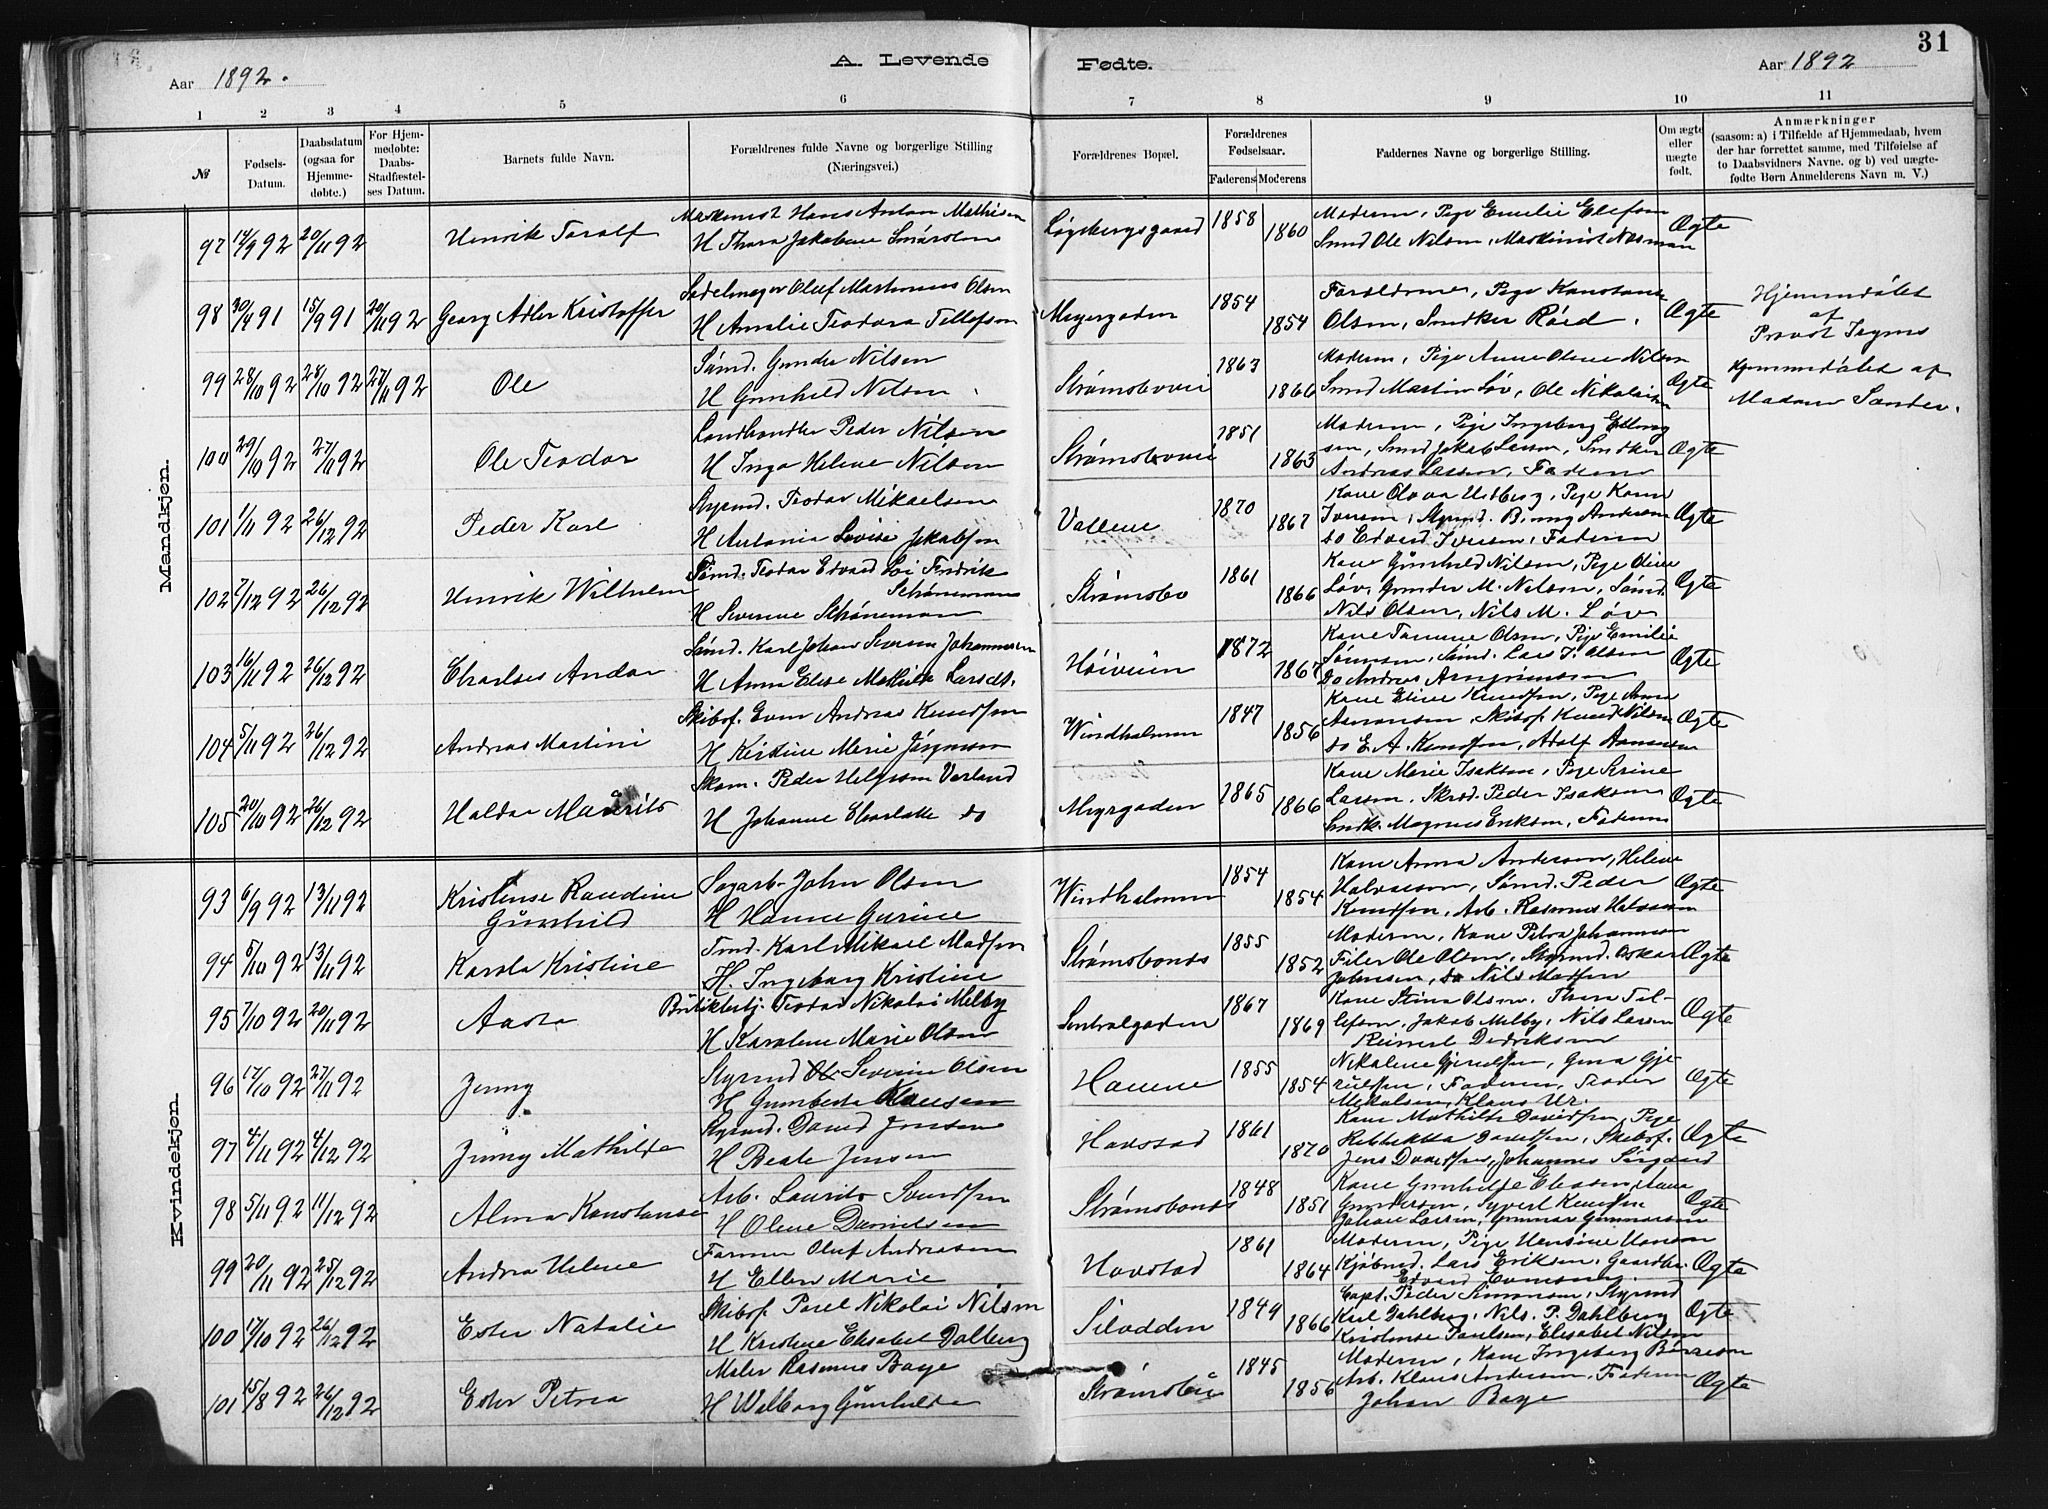 31
A. Levende Fødte.
Aar 1892.
Aar 1892
1 2 3 4 5 6 7 8 9 10 11
№
Fødsels-Datum.
Daabsdatum (ogsaa for Hjemme-døbte.)
For Hjem-medøbte: Daabs-Stadfæstel-ses Datum.
Barnets fulde Navn.
Forældrenes fulde Navne og borgerlige Stilling (Næringsvei).
Forældrenes Bopæl.
Forældrenes Fødselsaar.
Faderens Moderens
Faddernes Navne og borgerlige Stilling.
Om ægte eller uægte født.
Anmærkninger (saasom: a) i Tilfælde af Hjemmedaab, hvem der har forrettet samme, med Tilføielse af to Daabsvidners Navne. og b) ved uægte-fødte Børn Anmelderens Navn m. V.)
Mandkjøn.
97 14/9 92 20/11 92 Henrik Toralf Maskinist Hans Anton Mathisen 1858 Moderen, Pige Emilie Elefsen Ægte
H Thora Jakobine 1860 Smed Ole Nilsen, Maskinist
98 30/4 91 15/9 91 20/11 92 Georg Adler Kristoffer Sadelmager Oluf Martinius Olsen Meyergaden 1854 Forældrene, Pige Konstanse Ægte Hjemmedøbt
H Amalie Teodora Tellefsen 1854 Olsen, Snedker Röed. af
Provst
99 28/10 92 28/10 92 27/11 92 Ole Sømd. Gunder Nilsen Strømsboveii 1863 Moderen, Pige Anne Olene Nilsen Ægte Hjemmedøbt af
H Gunhild Nilsen 1866 Smed Martin Løv, Ole Nikolaisen Madam Sander.
100 29/10 92 27/11 92 Ole Teodor Landhandler Peder Nilsen Strømsboveii 1851 Moderen, Pige Ingeborg Elling
H Inga Helene Nilsen 1863 sen, Smed Jakob Larsen, Snedker Ægte
Andreas Larsen, Faderen
101 1/11 92 26/12 92 Peder Karl Styrmd. Teodor Mikaelsen Vollene 1870 Kone Olova Udberg, Pige Karen
H Antonia Lovise Jakobsen 1867 Iversen, Styrmd. Andersen Ægte
do Edvard Iversen, Faderen
102 7/12 92 26/12 92 Henrik Wilhelm Sømd. Teodor Edvard Fredrik Schøneman Strømsbo 1861 Kone Gunhild Nilsen, Pige Oline Ægte
H Severine Schøneman 1866 Løv, Gunder M. Nilsen, Sømd.
Nils Olsen, Nils M. Løv
103 16/11 92 26/12 92 Charles Andor Sømd. Karl Johan Severin Johannesen Høiveien 1872 Kone Tomine Olsen, Pige Emilie
H Anna Elise Mathilde Larsdt. 1867 Sørensen, Sømd. Lars J. Olsen Ægte
Do Andreas
104 5/11 92 26/12 92 Andreas Martini Skibsf. Even Andreas Knudsen Windholmen 1847 Kone Eline Knudsen, Pige Anna
H Kistine Marie Jörgensen 1856 Aanonsen, Skibsf. Knud Nilsen Ægte
do E. A. Knudsen, Adolf Aanonsen
105 20/10 92 26/12 92 Haldor Mauritz Skom. Peder Helgesen Varland Meyrgaden 1865 Kone Marie Isaksen, Pige Serine
H Johanne Charlotte do 1866 Larsen, Skræd. Peder Isaksen Ægte
Snedk. Magnus Eriksen, Faderen
Kvindekjøn.
93 6/9 92 13/11 92 Kristense Randine Gunhild Sagarb. John Olsen Windholmen 1854 Kone Anna Andersen, Heline
H Hanne Gurine 1854 Halvorsen, Sømd. Peder Ægte
Knudsen, Arb. Rasmus Halvorsen
94 5/10 92 13/11 92 Karola Kristine Tmd. Karl Mikael Madsen Strømsbonds 1855 Moderen, Kone Petra Johannesen
H. Ingeborg Kristine 1852 Filer Ole Olsen, Styrmd. Oskar Ægte
Johnsen, do Nils Madsen
95 7/10 92 20/11 92 Aasta Teodor Nikolai Melby Sentralgaden 1867 Kone Stina Olsen. Thora Tel-
H Karoline Marie Olsen 1869 lefsen, Jakob Melby, Nils Larsen Ægte
Reinert Didriksen
96 17/10 92 27/11 92 Jenny Styrmd Severin Olsen Havene 1855 Nikoline Gjeruldsen, Gina Gje-
H Gumberta Hansen 1854 ruldsen, Faderen, Teodor Ægte
Mikalsen, Klaus Ur.
97 4/11 92 4/12 92 Jenny Mathilde Styrmd. David Jensen Havstad 1861 Kone Mathilde Davidsen, Pige
H Beate Jensen 1870 Rebekka Davidsen, Skibsf. Ægte
Jens Davidsen, Johannes
98 5/11 92 11/12 92 Alma Konstanse Arb. Laurits Svendsen Strømsbonds 1848 Kone Gunhilde
H Olene Danielsen 1851 Gundersen, Syvert Knudsen Ægte
Johan Larsen, Gunnar Gunnarsen
99 20/11 92 25/12 92 Andrea Helene Former Oluf Andreasen Havstad 1861 Moderen, Pige Hansine Hansen
H Ellen Marie 1864 Kjøbmd. Lars Eriksen, Gaardbr. Ægte
Edvard Evensen
100 17/10 92 26/12 92 Ester Natalie Skibsf. Povel Nikolai Nilsen Silodden 1849 Capt. Peder Simonsen, Styrmd
H Kristine Elisabet Dalberg 1866 Karl Dahlberg, Nils. P. Dahlberg Ægte
Kristense Paulsen, Elisabet Nilsen
101 15/8 92 26/12 92 Ester Petrea Maler Rasmus Boye Strømsbu 1845 Moderen, Kone Ingeborg Børresen
H Walborg Gunhilda 1856 Arb. Klaus Andersen, Faderen Ægte
Johan Boye